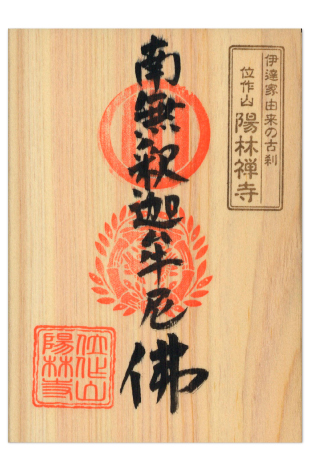 伊達家由来の古刹
位作山 陽林禅寺
南無釈迦牟尼佛
位作山
陽林寺